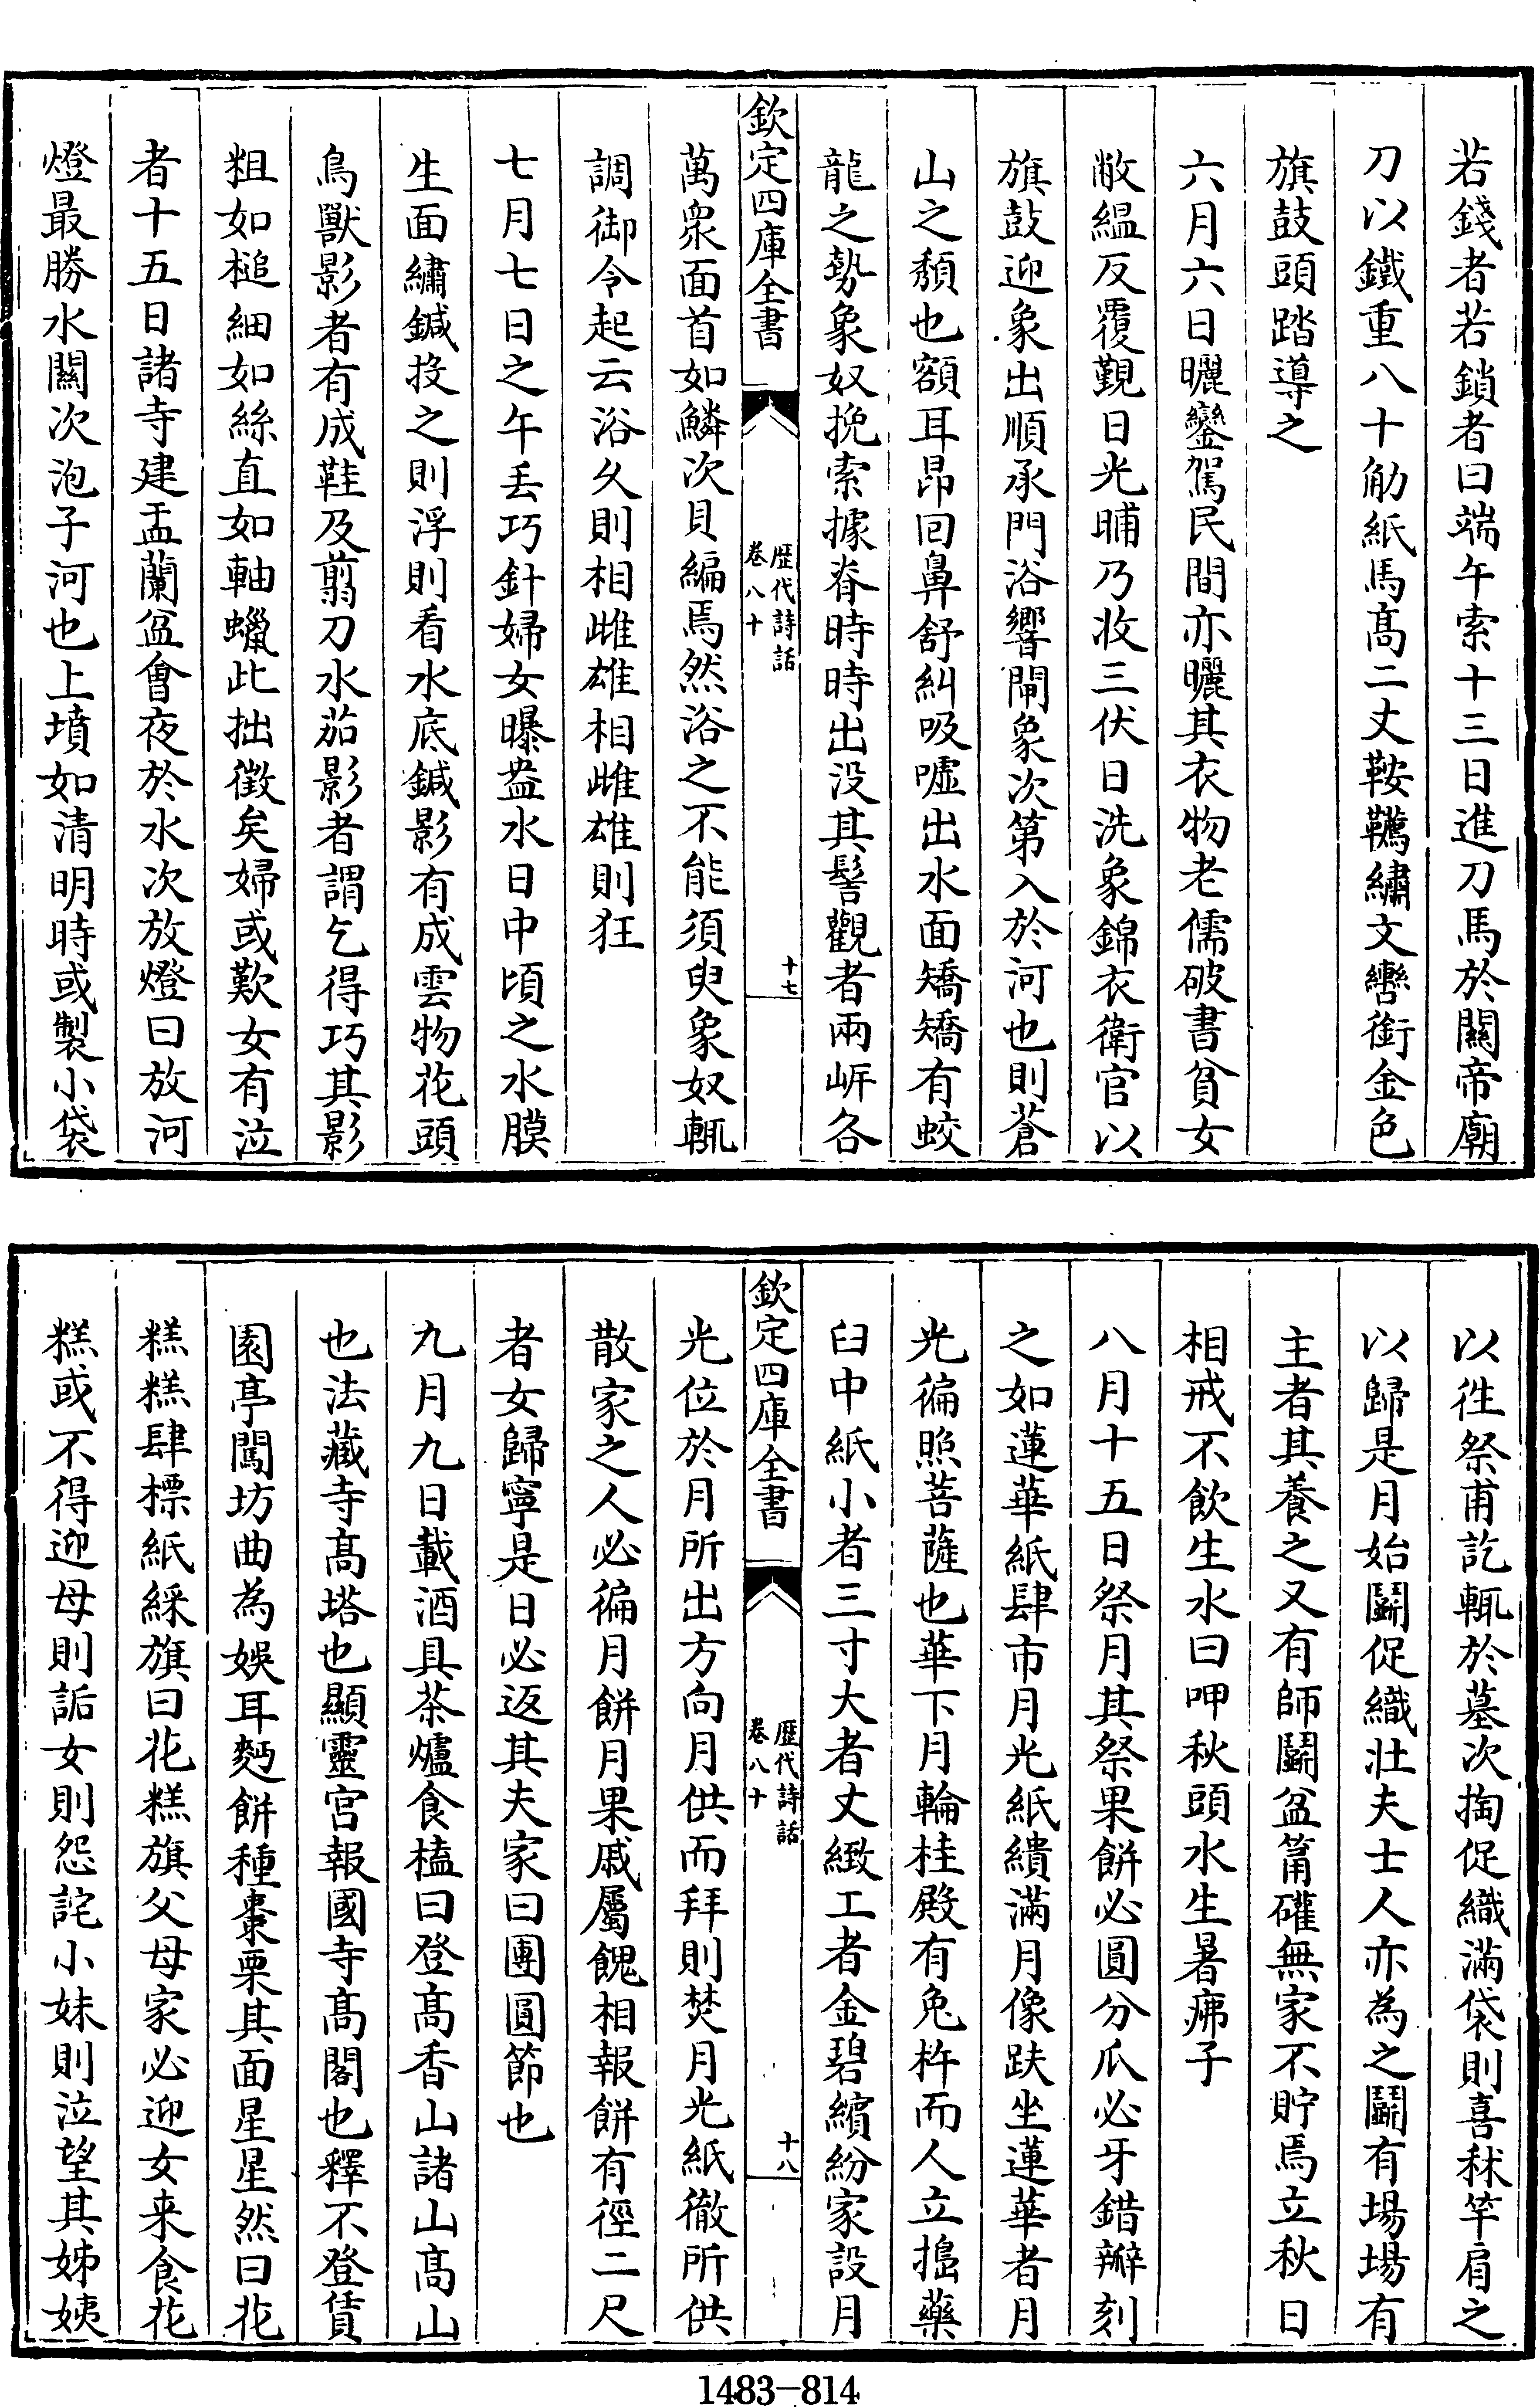 若錢者若鎖者曰端午索十三日進刀馬於關帝廟
刀以鐵重八十觔紙馬髙二丈鞍韉繡文轡銜金色
旗鼓頭踏導之
六月六日曬鑾駕民間亦曬其衣物老儒破書貧女
敝緼反覆覲日光晡乃收三伏日洗象錦衣衛官以
旗鼓迎象出順承門浴響閘象次第入於河也則蒼
山之頽也額耳昂回鼻舒糾吸噓出水面矯矯有蛟
龍之勢象奴挽索據脊時時出没其髻觀者兩岍各
欽定四庫全書
歴代詩話
卷八十
十七
萬衆面首如鱗次貝編焉然浴之不能須臾象奴輒
調御令起云浴久則相雌雄相雌雄則狂
七月七日之午丢巧針婦女曝盎水日中頃之水膜
生面繡鍼投之則浮則看水底鍼影有成雲物花頭
鳥獸影者有成鞋及翦刀水茄影者謂乞得巧其影
粗如槌細如絲直如軸蠟此拙徵矣婦或歎女有泣
者十五日諸寺建盂蘭盆會夜於水次放燈曰放河
燈最勝水關次泡子河也上墳如清明時或製小袋
以徃祭甫訖輒於墓次掏促織滿袋則喜秫竿肩之
以歸是月始鬭促織壯夫士人亦為之鬭有塲塲有
主者其養之又有師鬭盆筩礶無家不貯焉立秋日
相戒不飲生水曰呷秋頭水生暑疿子
八月十五日祭月其祭果餅必圓分瓜必牙錯瓣刻
之如蓮華紙肆市月光紙繢滿月像趺坐蓮華者月
光徧照菩薩也華下月輪桂殿有兔杵而人立搗藥
臼中紙小者三寸大者丈緻工者金碧繽紛家設月
欽定四庫全書
歴代詩話
卷八十
十八
光位於月所出方向月供而拜則焚月光紙徹所供
散家之人必徧月餅月果戚屬餽相報餅有徑二尺
者女歸寧是日必返其夫家曰團圓節也
九月九日載酒具茶爐食榼曰登髙香山諸山髙山
也法藏寺髙塔也顯靈宫報國寺髙閣也釋不登賃
園亭闖坊曲為娛耳麪餅種棗栗其面星星然曰花
糕糕肆標紙綵旗曰花糕旗父母家必迎女来食花
糕或不得迎母則詬女則怨詫小妹則泣望其姊姨
1483-814